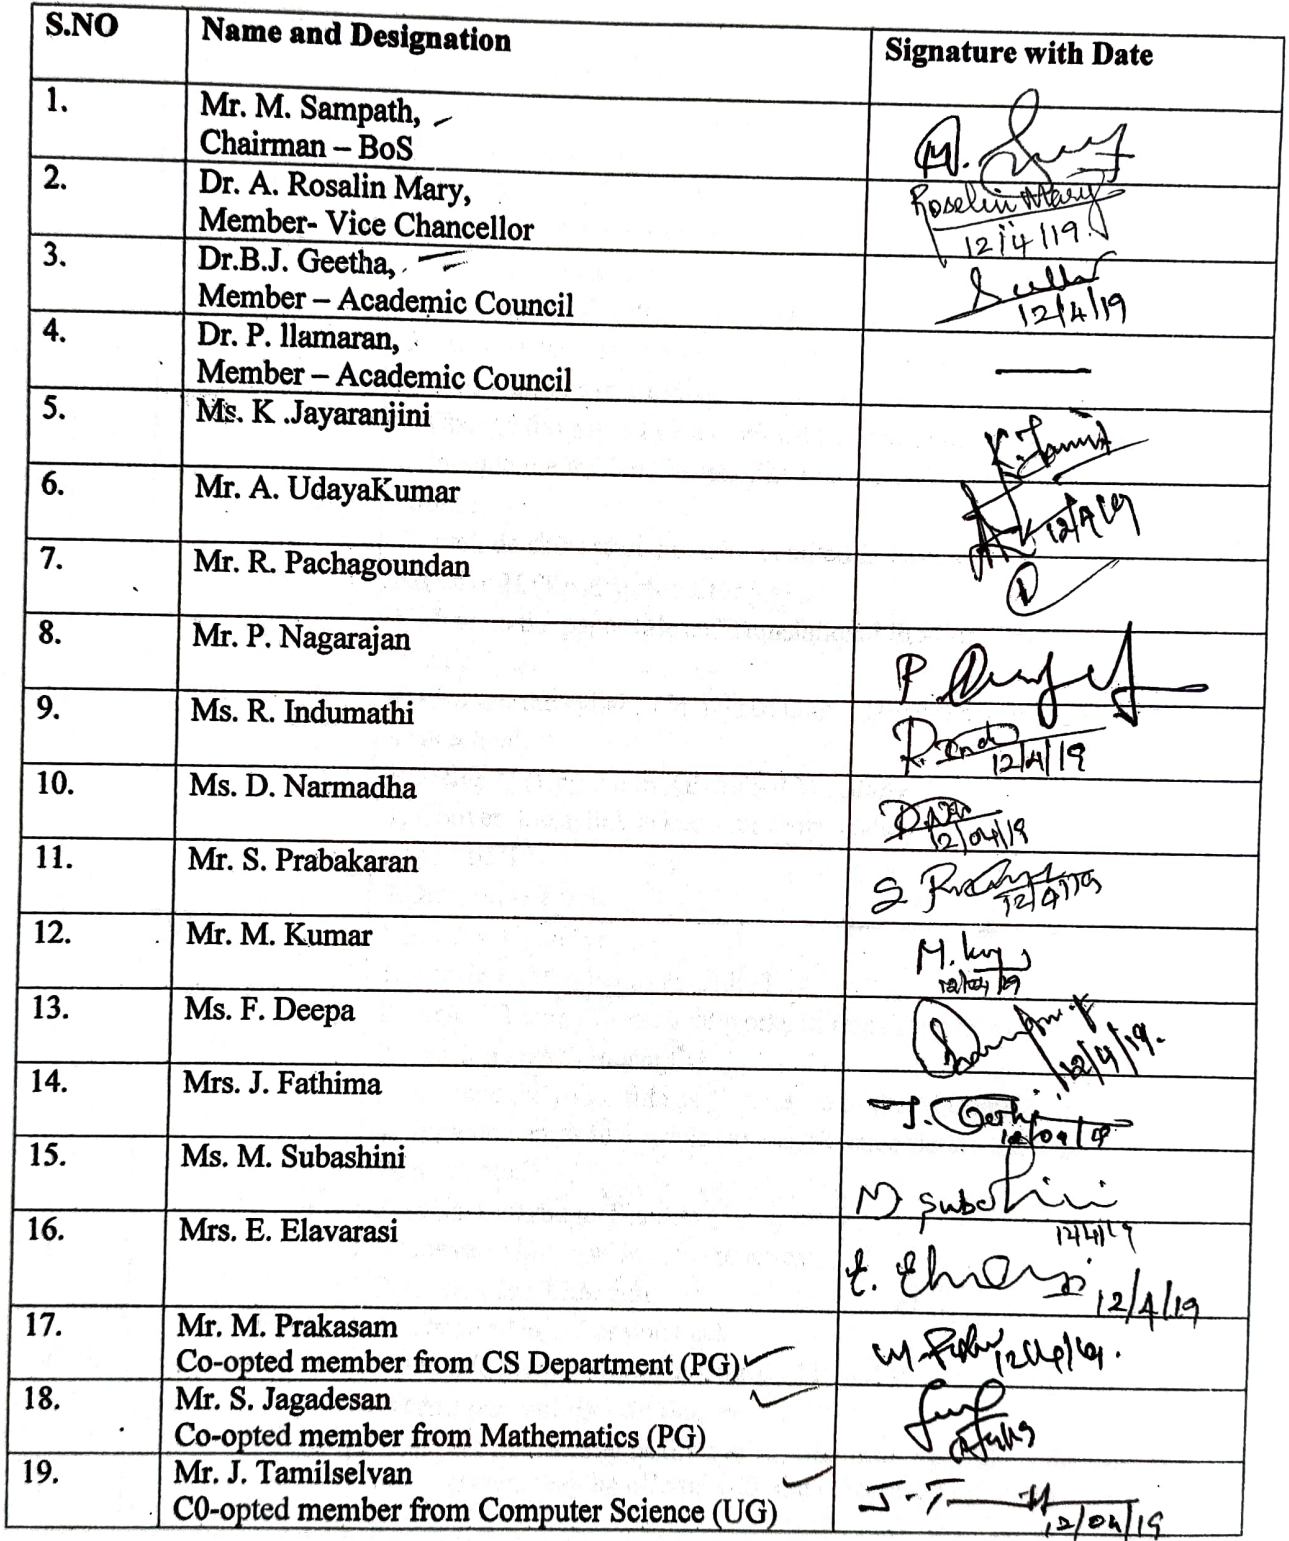 S.NO Name and Designation Signature with Date
1. Mr. M. Sampath,
Chairman – BoS
M.
2. Dr. A. Rosalin Mary,
Member- Vice Chancellor
Roselin Mary
12/4/19.
3. Dr.B.J. Geetha,
Member – Academic Council
12/4/19
4. Dr. P. llamaran,
Member – Academic Council
5. Ms. K .Jayaranjini
K.
6. Mr. A. UdayaKumar
12/4/19
7. Mr. R. Pachagoundan
8. Mr. P. Nagarajan
P.
9. Ms. R. Indumathi
R.
12/4/19
10. Ms. D. Narmadha
12/04/19
11. Mr. S. Prabakaran
S
12/4/19
12. Mr. M. Kumar
M.
12/04/19
13. Ms. F. Deepa
12/4/19.
14. Mrs. J. Fathima
J.
15. Ms. M. Subashini
M Subashini
12/4/19
16. Mrs. E. Elavarasi
E.
12/4/19
17. Mr. M. Prakasam
Co-opted member from CS Department (PG)
M.
18. Mr. S. Jagadesan
Co-opted member from Mathematics (PG)
19. Mr. J. Tamilselvan
C0-opted member from Computer Science (UG)
J.T
12/04/19